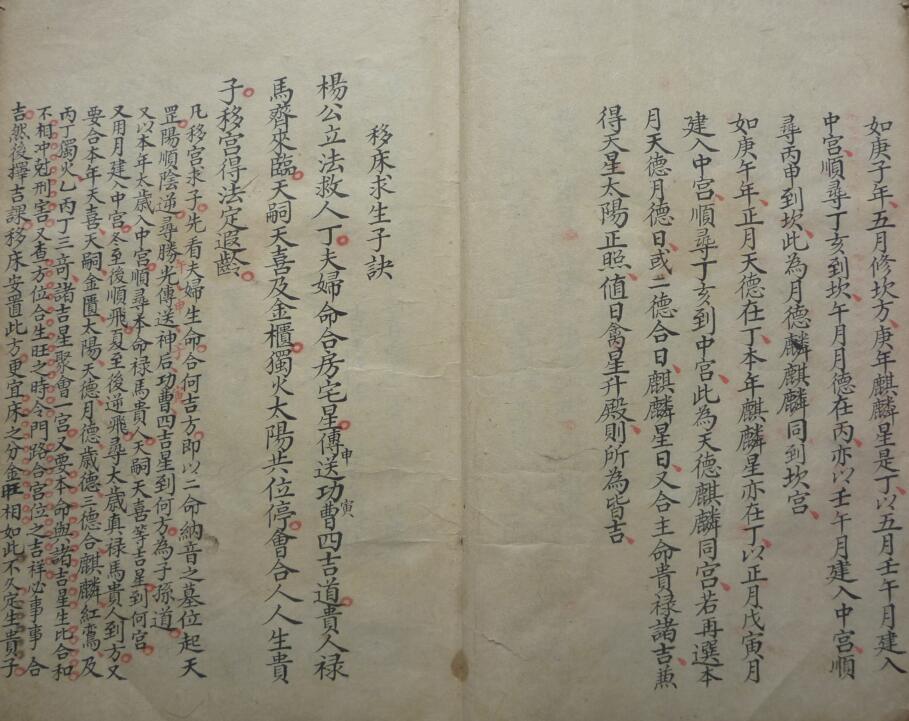 如庚子年五月修坎方庚年麒麟星是丁以五月壬午月建入
中宮順尋丁亥到坎午月月德在丙亦以壬午月建入中宮順
尋丙申到坎此為月德麟麒麟同到坎宮
如庚午年正月天德在丁本年麒麟星亦在丁以正月戊寅月
建入中宮順尋丁亥到中宮此為天德麒麟同宮若再選本
月天德月德日或二德合日麒麟星日又合主命貴祿諸吉蕪
得天星太陽正照值日禽星升殿則所為皆吉
移床求生子訣
楊公立法救人丁夫婦命合房宅星傳送申功曹寅四吉道貴人祿
馬齊來臨天嗣天喜及金櫃獨火太陽共位停會合人人生貴
子移宮得法定遐齡
凡移宮求子先看夫婦生命合何吉方即以二命納音之墓位起天
罡陽順陰逆尋勝光午傳送申神后子功曹寅四吉星到何方為子孫道
又以本年太歲入中宮順尋本命祿馬貴人天嗣天喜等吉星到何宮
又用月建入中宮冬至後順飛夏至後逆飛尋太歲真祿馬貴人到方又
要合本年天喜天嗣金匱太陽天德月德歲德三德合麒麟紅鸞及
丙丁獨火乙丙丁三奇諸吉星聚會一宮又要本命與諸吉星生比合和
不相冲尅刑害又查方位合生旺之時令門路合宮位之吉祥必事事合
吉然後擇吉課移床安置此方更宜床之分金旺相如此不久定生貴子